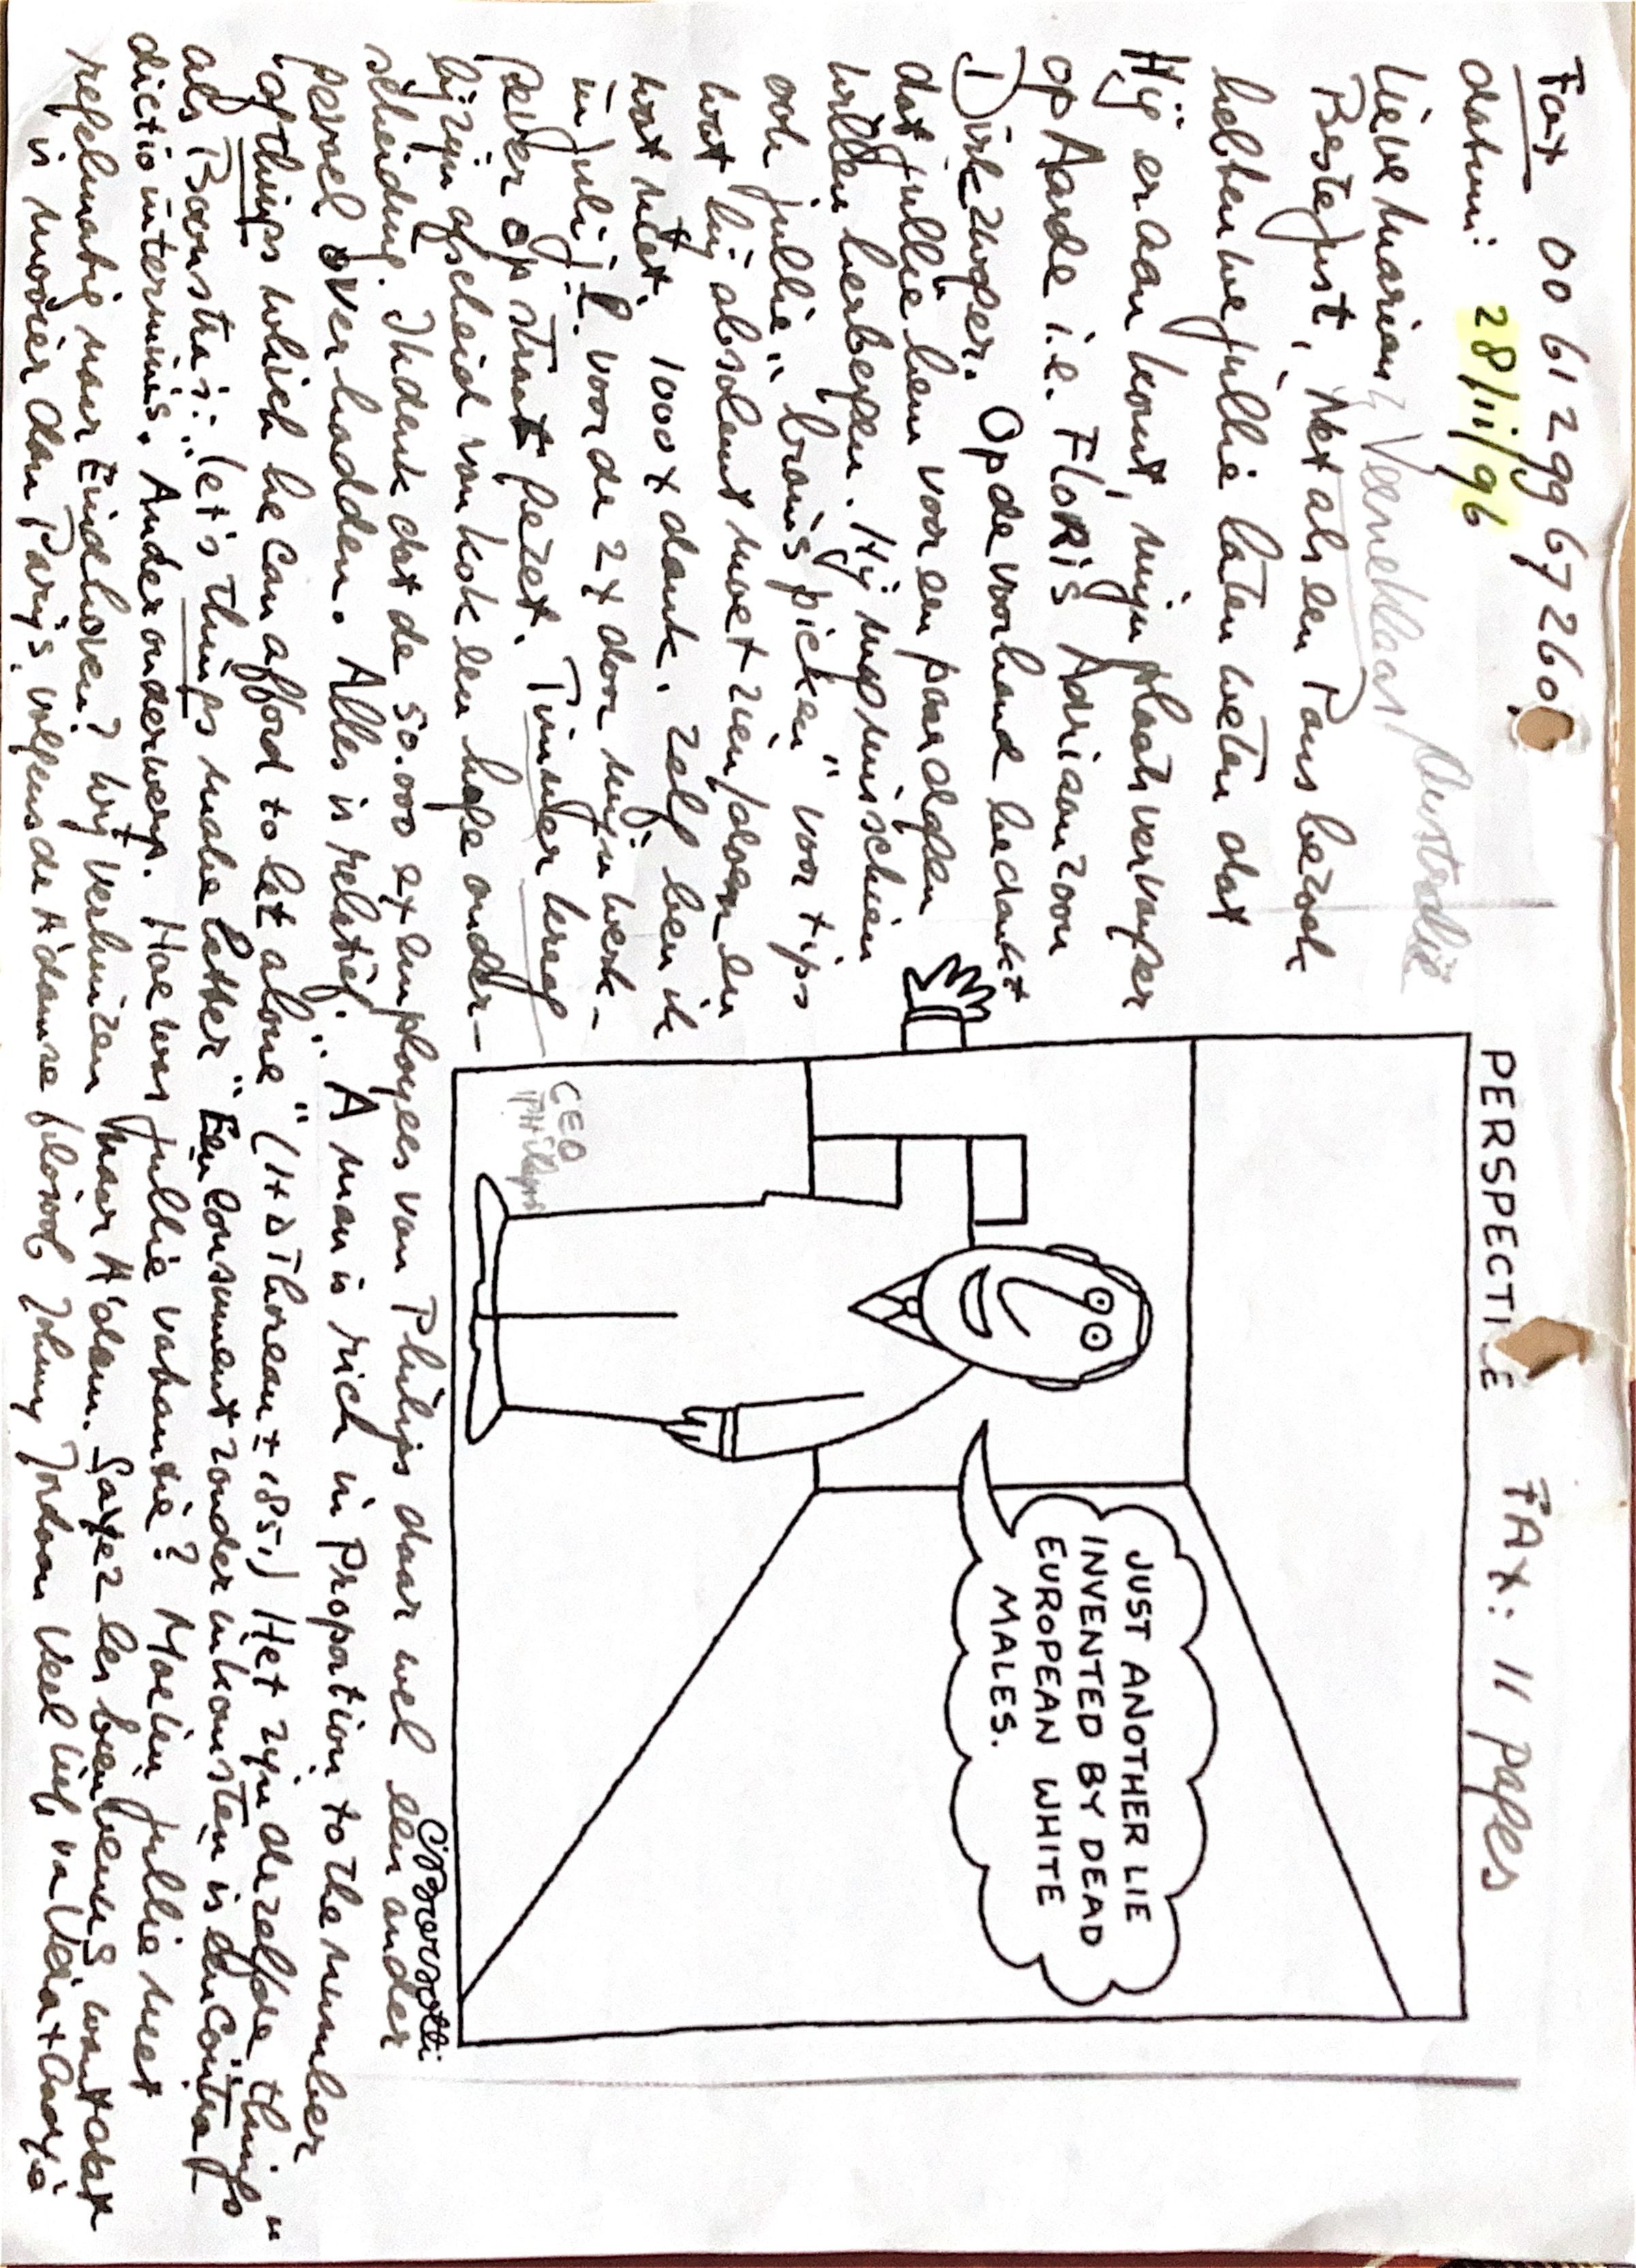 Fax 00 61 2 99 67 260
PERSPECTI E FAX: 11 pages
datum: 28/11/96
Australië
Lieve Marion,
Beste Just, Net als een Paus bezoek
hebben we jullie laten weten dat
Hij er aan komt, mijn plaatsvervanger
op Aarde i.e. FLORIS Adriaanzoon
Dirkzwager. Op de voorhand bedankt
dat jullie hem voor een paar dagen
willen herbergen. Hij mag misschien
ook jullie "brains picken" voor tips
wat hij absoluut moet zien/doen en
wat niet. 1000x dank. Zelf ben ik
in juli j.l. voor de 2x door mijn werk-
gever op straat gezet. Timmer kreeg
bij zijn afscheid van Kok een hoge onder-
scheiding. Ik denk dat de 50.000 ex employees van Philips daar wel een ander
gevoel over hadden. Alles is relatief. "A man is rich in Proportion to the number
of things which he can afford to let alone" (HD Thoreau ± 1851) Het zijn dezelfde things
als Boonstra's: "let's things make better" Een Consument zonder inkomsten is een Contra-
dictio in terminis. Ander onderwerp. Hoe was jullie vakantie? Moeten jullie niet
regelmatig naar Eindhoven? Wij verhuizen naar A'dam. Soyez les bienvenus want dat
is mooier dan Parijs, volgens de A'damse filosoof Johnny Jordaan Veel liefs
CEO
Philips
JUST ANOTHER LIE
INVENTED BY DEAD
EUROPEAN WHITE
MALES.